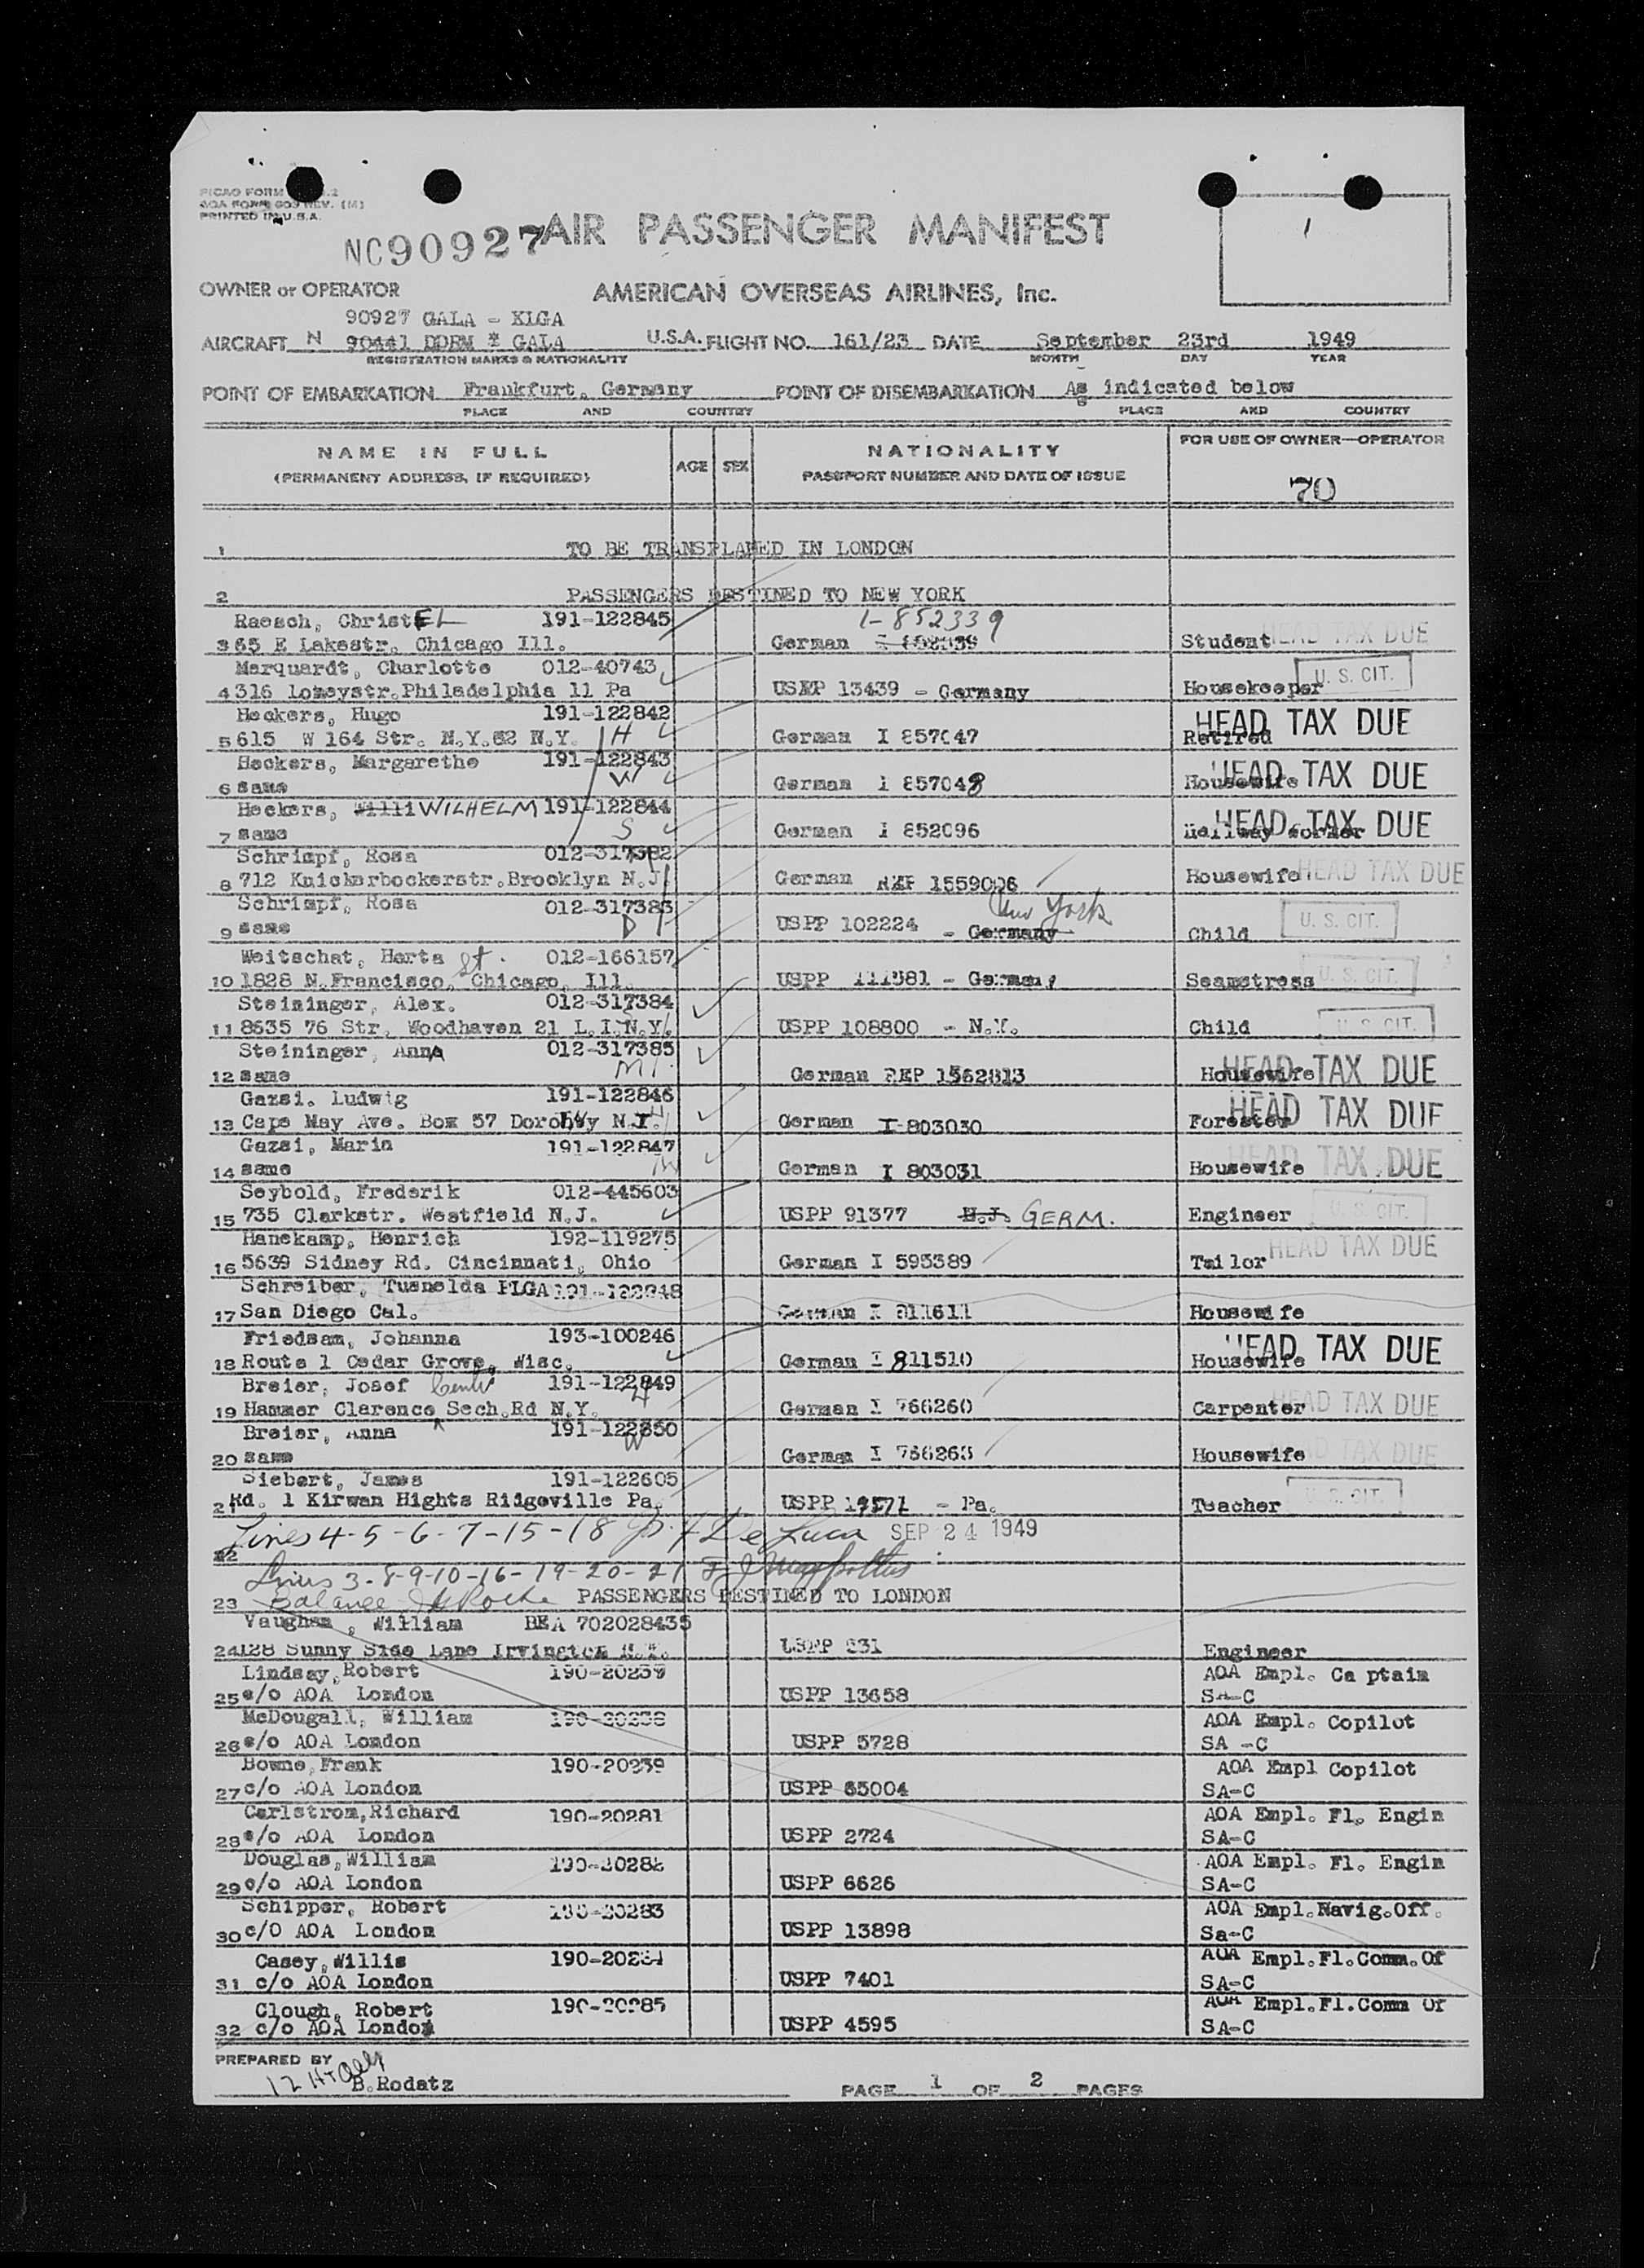 AOA FORM 609 REV. (M)
PRINTED IN U.S.A.
NC90927
AIR PASSENGER MANIFEST
OWNER or OPERATOR AMERICAN OVERSEAS AIRLINES, Inc.
90927 GALA - KLGA
AIRCRAFT N 90441 DDRM * GALA U.S.A. FLIGHT NO. 161/23 DATE September 23rd 1949
REGISTRATION MARKS & NATIONALITY MONTH DAY YEAR
POINT OF EMBARKATION Frankfurt, Germany POINT OF DISEMBARKATION As indicated below
PLACE AND COUNTRY PLACE AND COUNTRY
NAME IN FULL AGE SEX NATIONALITY FOR USE OF OWNER—OPERATOR
(PERMANENT ADDRESS, IF REQUIRED) PASSPORT NUMBER AND DATE OF ISSUE
70
1 TO BE TRANSPLANED IN LONDON
2 PASSENGERS DESTINED TO NEW YORK
Raesch, ChristEL 191-122845 I-852339
3 65 E Lakestr. Chicago Ill. German Student HEAD TAX DUE
Marquardt, Charlotte 012-40743 U. S. CIT.
4 316 lomeystr. Philadelphia 11 Pa USEP 13439 - Germany Housekeeper
Heckers, Hugo 191-122842 HEAD TAX DUE
5 615 W 164 Str. N.Y.32 N.Y. H German I 857047 Retired
Heckers, Margarethe 191-122843 HEAD TAX DUE
6 same W German I 857048 Housewife
Heckers, Willi WILHELM 191-122844 HEAD TAX DUE
7 same S German I 852096 Railway worker
Schrimpf, Rosa 012-317382
8 712 Knickerbockerstr. Brooklyn N.J. German REP 1559006 Housewife HEAD TAX DUE
Schrimpf, Rosa 012-317383 New York
9 same D USPP 102224 - Germany Child U. S. CIT.
Weitschat, Herta 012-166157
10 1828 N. Francisco st. Chicago, Ill. USPP 111581 - Germany Seamstress U. S. CIT.
Steininger, Alex. 012-317384
11 8635 76 Str, Woodhaven 21 L.I.N.Y. USPP 108800 - N.Y. Child U. S. CIT.
Steininger, Anna 012-317385
12 same German REP 1562813 Housewife HEAD TAX DUE
Gazsi, Ludwig 191-122846 HEAD TAX DUE
13 Cape May Ave. Box 57 Dorothy N.J. German I 803030 Forester
Gazsi, Maria 191-122847
14 same German I 803031 Housewife HEAD TAX DUE
Seybold, Frederik 012-445603
15 735 Clarkstr. Westfield N.J. USPP 91377 N.J. GERM. Engineer U. S. CIT.
Hanekamp, Henrich 192-119275
16 5639 Sidney Rd. Cincinnati, Ohio German I 595389 Tailor HEAD TAX DUE
Schreiber, Tusnelda PLGA 191-122848
17 San Diego Cal. German I 811611 Housewife
Friedsam, Johanna 193-100246 HEAD TAX DUE
18 Route 1 Cedar Grove, Wisc. German I 811510 Housewife
Breier, Josef 191-122849
19 Hammer Clarence Sech.Rd N.Y. German I 766260 Carpenter HEAD TAX DUE
Breier, Anna 191-122850
20 same W German I 766263 Housewife HEAD TAX DUE
Siebert, James 191-122605
21 Rd. 1 Kirwan Hights Ridgeville Pa. USPP 19571 - Pa. Teacher U. S. CIT.
Lines 4-5-6-7-15-18 De Luca SEP 24 1949
22
Lines 3-8-9-10-16-19-20-21
23 Balance PASSENGERS DESTINED TO LONDON
Vaughan, William BEA 702028435
24 128 Sunny Side Lane Irvington N.Y. USPP 231 Engineer
Lindsay, Robert 190-20239 AOA Empl. Captain
25 c/o AOA London USPP 13658 SA-C
McDougall, William 190-20238 AOA Empl. Copilot
26 c/o AOA London USPP 5728 SA -C
Bowne, Frank 190-20239 AOA Empl Copilot
27 c/o AOA London USPP 65004 SA-C
Carlstrom, Richard 190-20281 AOA Empl. Fl. Engin
28 c/o AOA London USPP 2724 SA-C
Douglas, William 190-20282 AOA Empl. Fl. Engin
29 c/o AOA London USPP 6626 SA-C
Schipper, Robert 190-20283 AOA Empl. Navig. Off.
30 c/O AOA London USPP 13898 Sa-C
Casey, Willis 190-20284 AOA Empl. Fl. Comm. Of
31 c/o AOA London USPP 7401 SA-C
Clough, Robert 190-20285 AOA Empl. Fl. Comm Of
32 c/o AOA London USPP 4595 SA-C
PREPARED BY
B. Rodatz
PAGE 1 OF 2 PAGES